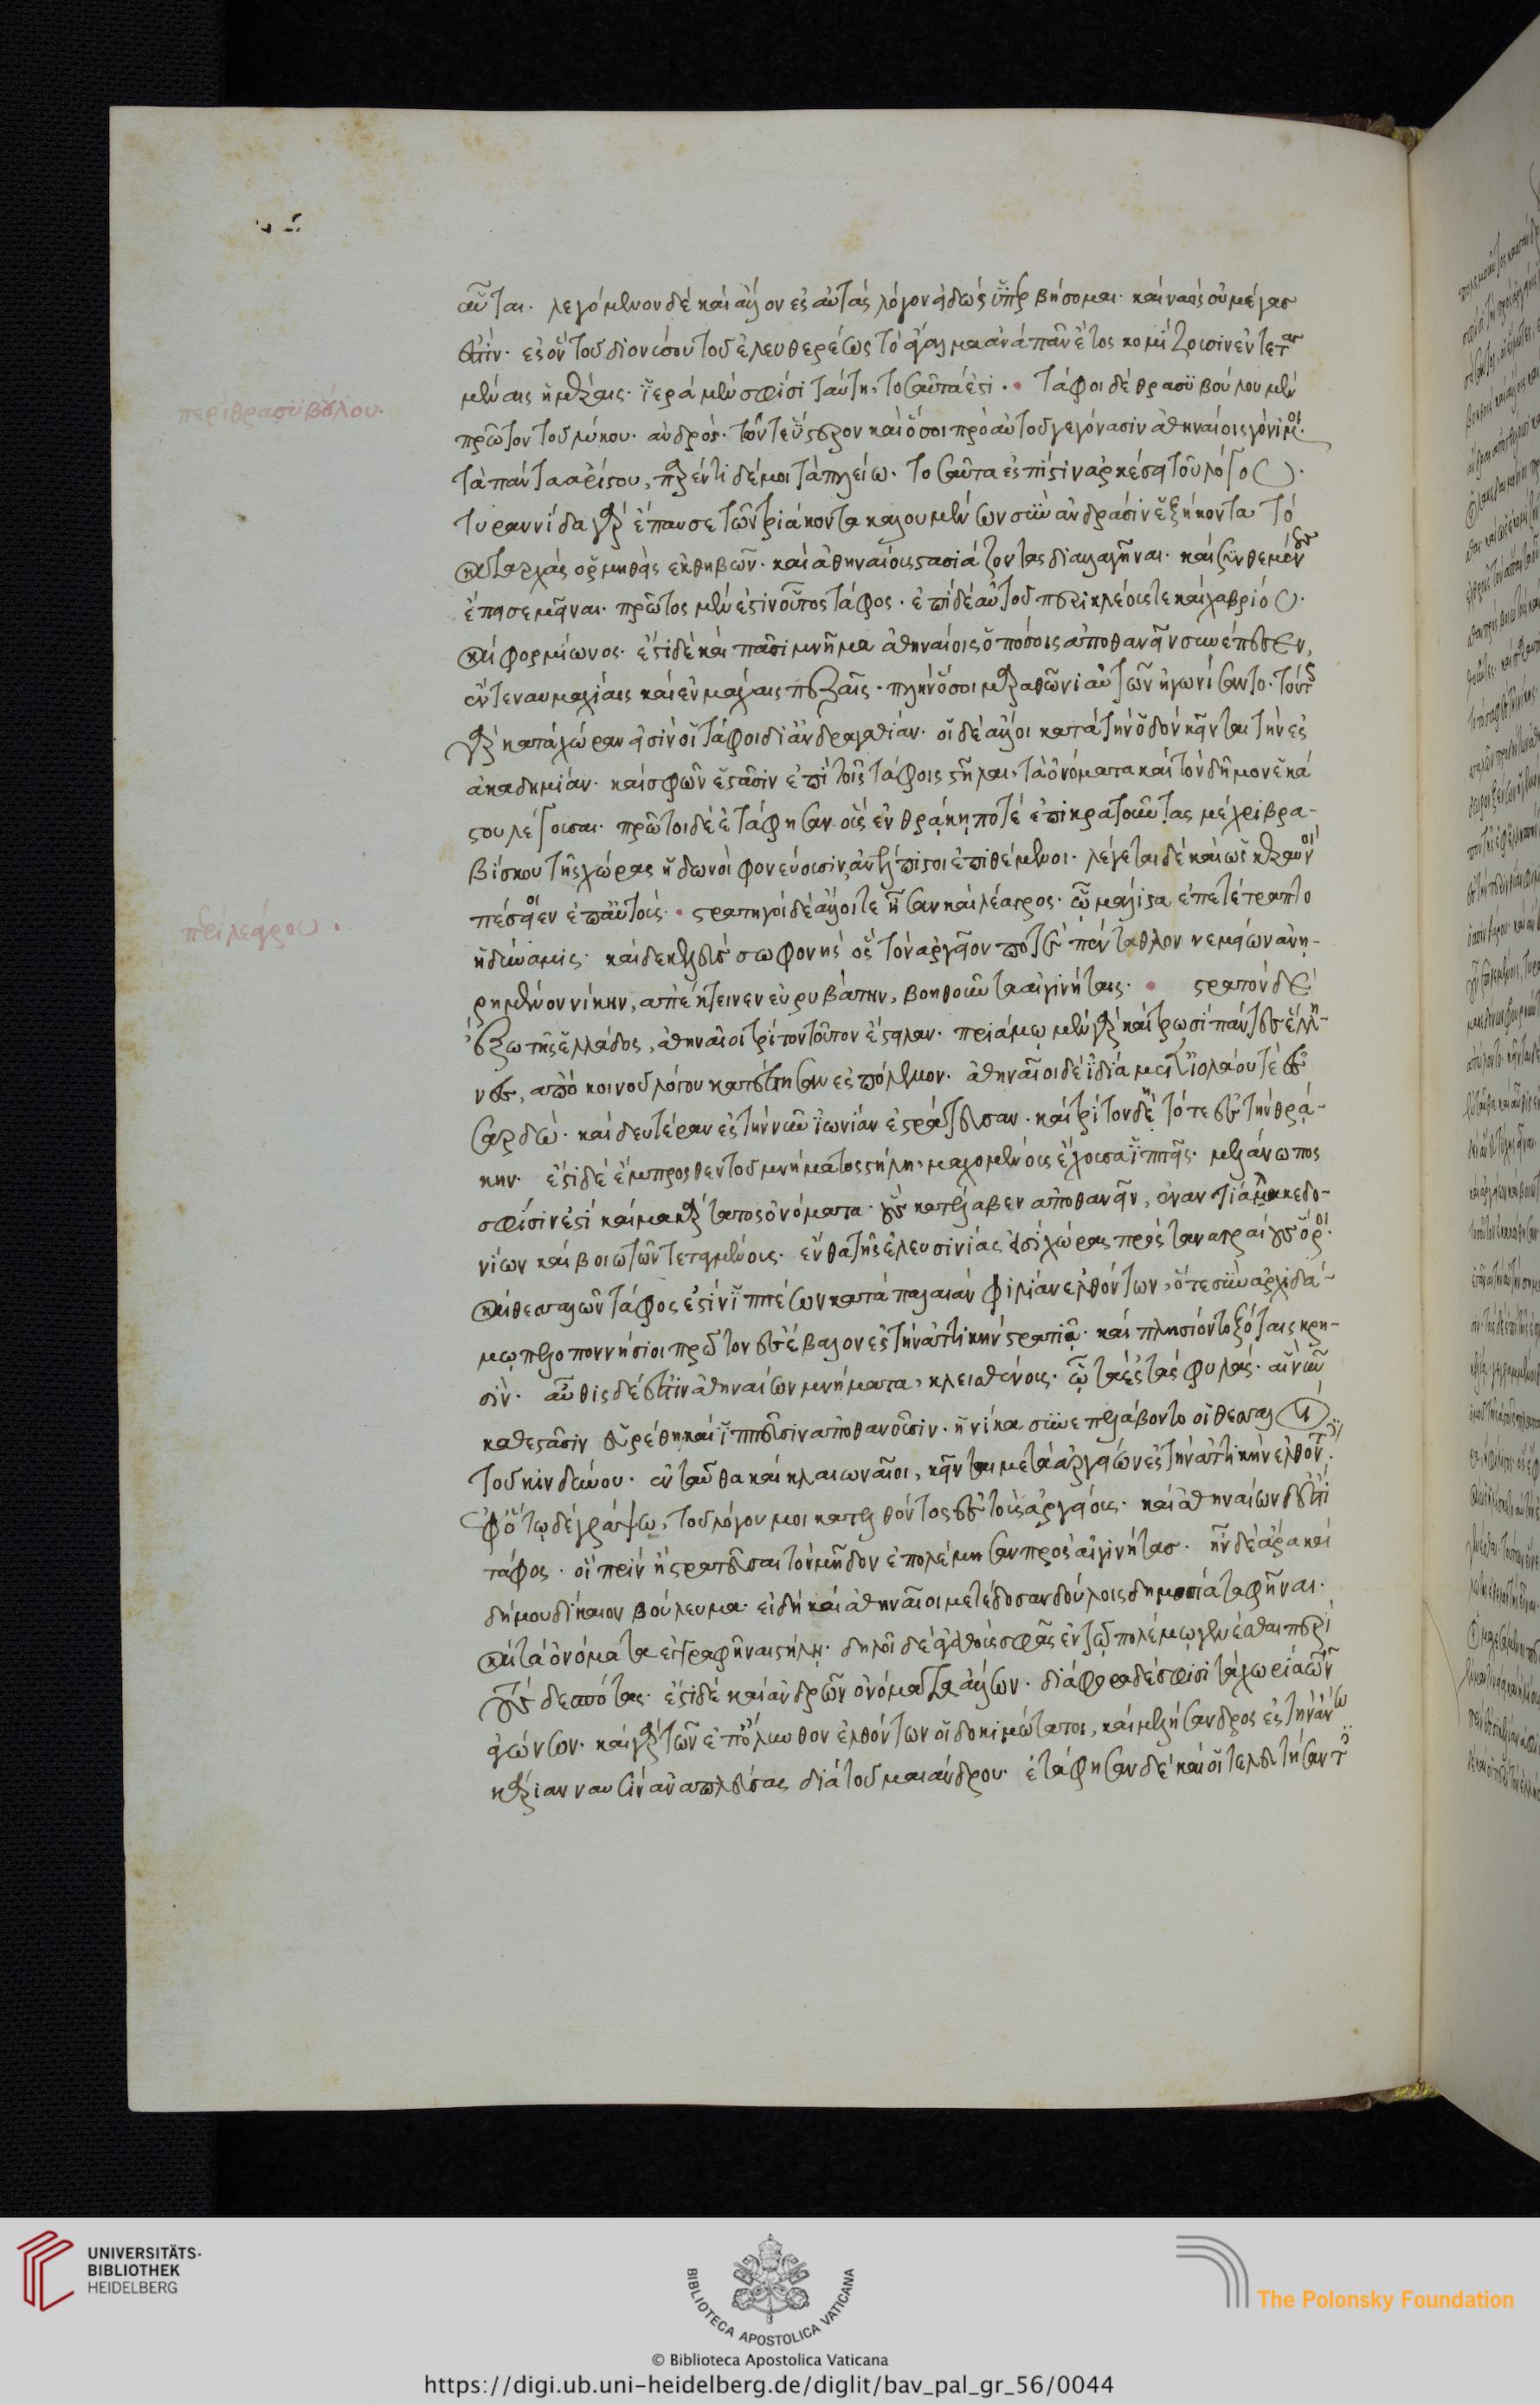 περι θρασϋβούλου.
περὶ λεάγρου.
αὗται. λεγόμενον δὲ καὶ ἄλλον ἐς αὐτὰς λόγον εἰδὼς ὑπερβήσομαι. καὶ ναὸς οὐ μέγας
ἐστὶν. ἐς ὃν τοῦ διονύσου τοῦ ἐλευθερέως τὸ ἄγαλμα ἀνὰ πᾶν ἔτος κομίζουσιν ἐν τεταγ
μέναις ἡμέραις. ἱερὰ μὲν σφίσι ταύτη, τοσαῦτά ἐστι. τάφοι δὲ θρασϋβούλου μὲν
πρῶτον τοῦ λύκου. ἀνδρὸς. τῶν τε ὕστερον καὶ ὅσοι πρὸ αὐτοῦ γεγόνασιν ἀθηναίοις
τὰ πάντα ἀρίστου, παρέντι δέ μοι τὰ πλείω. τοσαῦτα ἐς πίστιν ἀρκέσει τοῦ λόγου.
τυραννίδα γὰρ ἔπαυσε τῶν τριάκοντα καλουμένων σὺν ἀνδράσιν ἑξήκοντα τὸ
κατ' ἀρχὰς ὁρμηθεὶς ἐκ θηβῶν. καὶ ἀθηναίους στασιάζοντας διαλλαγῆναι. καὶ συνθεμένους
ἔπεισε μεῖναι. πρῶτος μὲν ἐστὶν οὗτος τάφος. ἐπὶ δὲ αὐτοῦ περικλέους τε καὶ χαβρίου.
καὶ φορμίωνος. ἔστι δὲ καὶ πᾶσι μνῆμα ἀθηναίοις ὁπόσοις ἀποθανεῖν συνέπεσεν,
ἔν τε ναυμαχίαις καὶ ἐν μάχαις πεζαῖς. πλὴν ὅσοι μαραθῶνι αὐτῶν ἠγωνίσαντο. τούτοις
γὰρ κατὰ χώραν εἰσὶν οἱ τάφοι δι' ἀνδραγαθίαν. οἱ δὲ ἄλλοι κατὰ τὴν ὁδὸν κεῖνται τὴν ἐς
ἀκαδημίαν. καὶ σφῶν ἑστᾶσιν ἐπὶ τοῖς τάφοις στῆλαι, τὰ ὀνόματα καὶ τὸν δῆμον ἑκά
στου λέγουσαι. πρῶτοι δὲ ἐτάφησαν οὓς ἐν θράκη ποτὲ ἐπικρατοῦντας μέχρι βρα-
βίσκου τῆς χώρας ἠδωνοὶ φονεύουσιν, ἀνέλπιστοι ἐπιθέμενοι. λέγεται δὲ καὶ ὡς κεραυνοὶ
πέσοιεν ἐπ' αὐτοὺς. στρατηγοὶ δὲ ἄλλοι τε ἦσαν καὶ λέαγρος. ᾧ μάλιστα ἐπετέτραπτο
ἡ δύναμις. καὶ δεκελεὺς σωφονὴς ὃς τὸν ἀργεῖον ποτὲ πένταθλον νεμείων ἀνη-
ρημένον νίκην, ἀπέκτεινεν εὐρυβάτην, βοηθοῦντα αἰγινήταις. στρατὸν δὲ
ἔξω τῆς ἑλλάδος, ἀθηναῖοι τρίτον τοῦτον ἔστειλαν. πριάμῳ μὲν γὰρ καὶ τρωσὶ πάντες ἕλλη-
νες, ἀπὸ κοινοῦ λόγου κατέστησαν ἐς πόλεμον. ἀθηναῖοι δὲ ἰδίᾳ μετ' ἰολάου τὲ ἐς
σαρδὼ. καὶ δευτέραν ἐς τὴν νῦν ἰωνίαν ἐστράτευσαν. καὶ τρίτον δὴ τότε ἐς τὴν θρᾴ-
κην. ἔστι δὲ ἔμπροσθεν τοῦ μνήματος στήλη, μαχομένους ἔχουσα ἱππεῖς. μελάνωπος
σφίσιν ἐστὶ καὶ μακάρτατος ὀνόματα. οὓς κατέλαβεν ἀποθανεῖν, ἐναντία λακεδαιμο-
νίων καὶ βοιωτῶν τεταγμένους. ἔνθα τῆς ἐλευσινίας εἰσὶ χώρας πρὸς ταναγραίους ὅροι.
καὶ θεσσαλῶν τάφος ἐστὶν ἱππέων κατὰ παλαιὰν φιλίαν ἐλθόντων, ὅτε σὺν ἀρχιδά-
μῳ πελοποννήσιοι πρῶτον ἐσέβαλον ἐς τὴν ἀττικὴν στρατιᾷ. καὶ πλησίον τοξόταις κρη-
σὶν. αὖθις δέ ἐστιν ἀθηναίων μνήματα, κλεισθένους. ᾧ τὰ ἐς τὰς φυλὰς. αἳ νῦν
καθεστᾶσιν εὑρέθη καὶ ἱππεῦσιν ἀποθανοῦσιν. ἡνίκα συνεπελάβοντο οἱ θεσσαλοὶ
τοῦ κινδύνου. ἐνταῦθα καὶ κλαιωναῖοι, κεῖνται μετὰ ἀργείων ἐς τὴν ἀττικὴν ἐλθόντες.
ἐφ' ὅτῳ δὲ γράψω, τοῦ λόγου μοι κατελθόντος ἐς τοὺς ἀργείους. καὶ ἀθηναίων δέ ἐστι
τάφος. οἳ πρὶν ἢ στρατεῦσαι τὸν μῆδον ἐπολέμησαν πρὸς αἰγινήτας. ἦν δὲ ἄρα καὶ
δήμου δίκαιον βούλευμα. εἰ δὴ καὶ ἀθηναῖοι μετέδοσαν δούλοις δημοσίᾳ ταφῆναι.
καὶ τὰ ὀνόματα ἐγγραφῆναι στήλῃ. δηλοῖ δὲ ἀγαθοὺς σφᾶς ἐν τῷ πολέμῳ γενέσθαι περὶ
τοὺς δεσπότας. ἔστι δὲ καὶ ἀνδρῶν ὀνόματα ἄλλων. διάφορα δὲ σφίσι τὰ χωρία τῶν
ἀγώνων. καὶ γὰρ τῶν ἐπ' ὄλυνθον ἐλθόντων οἱ δοκιμώτατοι, καὶ μελήσανδρος ἐς τὴν ἄνω
καρίαν ναυσὶν ἀναπλεύσας διὰ τοῦ μαιάνδρου. ἐτάφησαν δὲ καὶ οἱ τελευτήσαντες
UNIVERSITÄTS-
BIBLIOTHEK
HEIDELBERG
BIBLIOTECA APOSTOLICA VATICANA
© Biblioteca Apostolica Vaticana
The Polonsky Foundation
https://digi.ub.uni-heidelberg.de/diglit/bav_pal_gr_56/0044